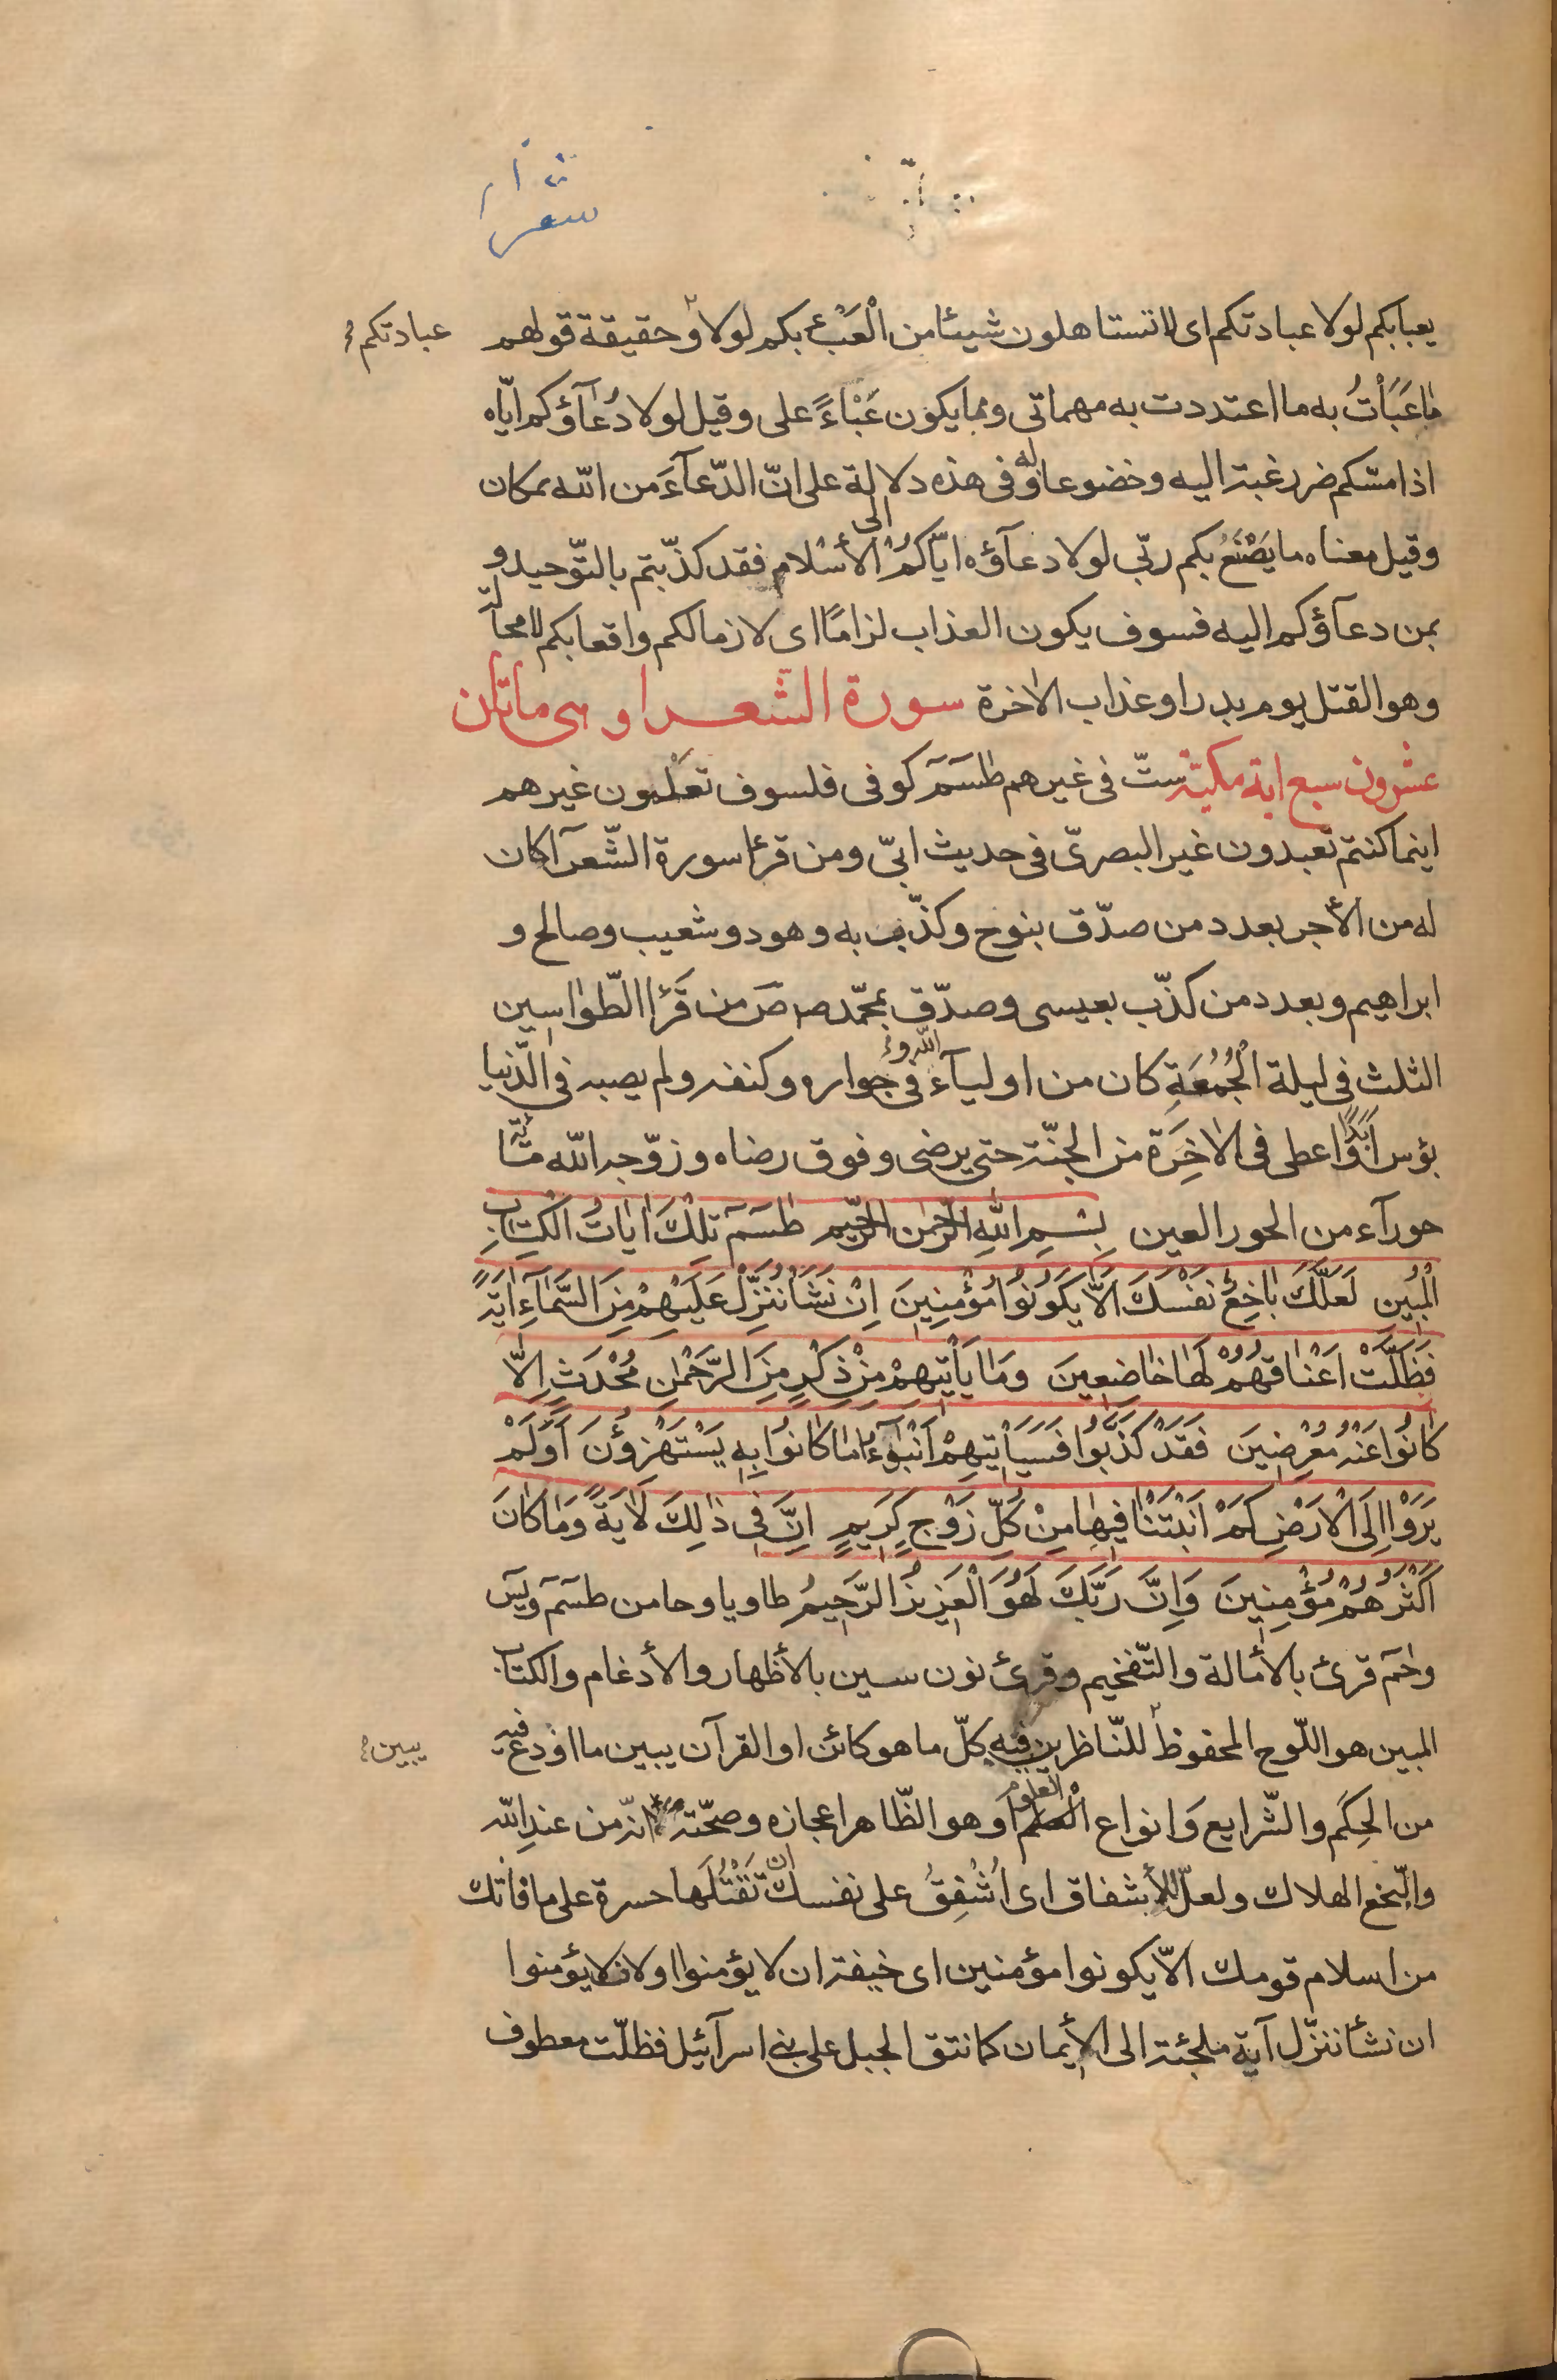 شعرا
يعبابكم لولا عبادتكم اى لا تستاهلون شيئا من الْعَبْءِ بكم لولا وحقيقة قولهم
عبادتكم
مٰا عَبَأْتُ به ما اعتددت به مهماتى ومما يكون عَبْاءً على وقيل لولا دُعٰآؤكم ايّاه
اذا مسّكم ضر رغبة اليه وخضوعا له وفى هذه دلالة على انّ الدّعآءَ من الله بمكان
وقيل معناه ما يَصْنَعُ بكم ربّى لولا دعآؤه ايّاكُمْ الى الأسْلام فقد كذّبتم بالتّوحيد و
بمن دعآؤكم اليه فسوف يكون العذاب لزامًا اى لازما لكم واقعا بكم لا محالة
وهو القتل يوم بدر او عذاب الاٰخرة سورة الشّعرا وهى ماتان
عشرون سبع اية مكيّة ستّ فى غيرهم طٰسٓمٓ كوفى فلسوف تعلمون غيرهم
اينما كنتم تعبدون غير البصرىّ فى حديث ابىّ ومن قرأ سورة الشّعرآ كان
له من الأجر بعدد من صدّق بنوح وكذّب به وهود وشعيب وصالح و
ابراهيم وبعدد من كذّب بعيسى وصدّق بمحمّد ص صَ من قَرَأ الطّوٰاسين
الثلث فى ليلة الْجُمُعَةِ كان من اوليآء الله و فى جواره وكنفه ولم يصبه فى الدّنيا
بؤس اَبَدًا واعطى فى الاٰخِرَة من الجنّة حتى يرضى وفوق رضاه وزوّجه الله مائة
حورآء من الحور العين بِسْمِ اللهِ الرَّحْمٰنِ الرَّحيمِ طٰسٓمٓ تِلْكَ اٰيٰاتُ الْكِتٰابِ
الْمُبينِ لَعَلَّكَ بٰاخِعٌ نَفْسَكَ اَلّٰا يَكُونُوا مُؤْمِنينَ اِنْ نَشَأْ نُنَزِّلْ عَلَيْهِمْ مِنَ السَّمٰآءِ اٰيَةً
فَظَلَّتْ اَعْنٰاقُهُمْ لَهٰا خٰاضِعينَ وَمٰا يَأْتيهِمْ مِنْ ذِكْرٍ مِنَ الرَّحْمٰنِ مُحْدَثٍ اِلّٰا
كٰانُوا عَنْهُ مُعْرِضينَ فَقَدْ كَذَّبُوا فَسَيَأْتيهِمْ اَنْبٰؤُا مٰا كٰانُوا بِهِ يَسْتَهْزِؤُنَ اَوَلَمْ
يَرَوْا اِلَى الْاَرْضِ كَمْ اَنْبَتْنٰا فيهٰا مِنْ كُلِّ زَوْجٍ كَريمٍ اِنَّ فى ذٰلِكَ لَاٰيَةً وَمٰا كٰانَ
اَكْثَرُهُمْ مُؤْمِنينَ وَاِنَّ رَبَّكَ لَهُوَ الْعَزيزُ الرَّحيمُ طا ويا وحا من طسٓمٓ ويسٓ
وحٰمٓ قرئ بالأمالة والتّفخيم وقرئ نون سين بالأظهار والأدغام والكتاب
المبين هو اللّوح المحفوظ للنّاظرين فيه كلّ ما هو كائن او القرآن يبين ما اودع فيه
يبين
من الحِكَم والشّرايع وَانواع العلوم او هو الظّاهر اعجازه وصحّته انّه من عندِ الله
والبّخع الهلاك ولعلّ للأشفاق اى اُشْفِقُ على نفسك ان تَقْتُلَها حسرة على ما فاتك
من اسلام قومك الاّ يكونوا مؤمنين اى خيفة ان لا يؤمنوا اولان لا يؤمنوا
ان نشأ ننزّل آية ملجئة الى الأيمان كما نتق الجبل على بنى اسرآئيل فظلّت معطوف